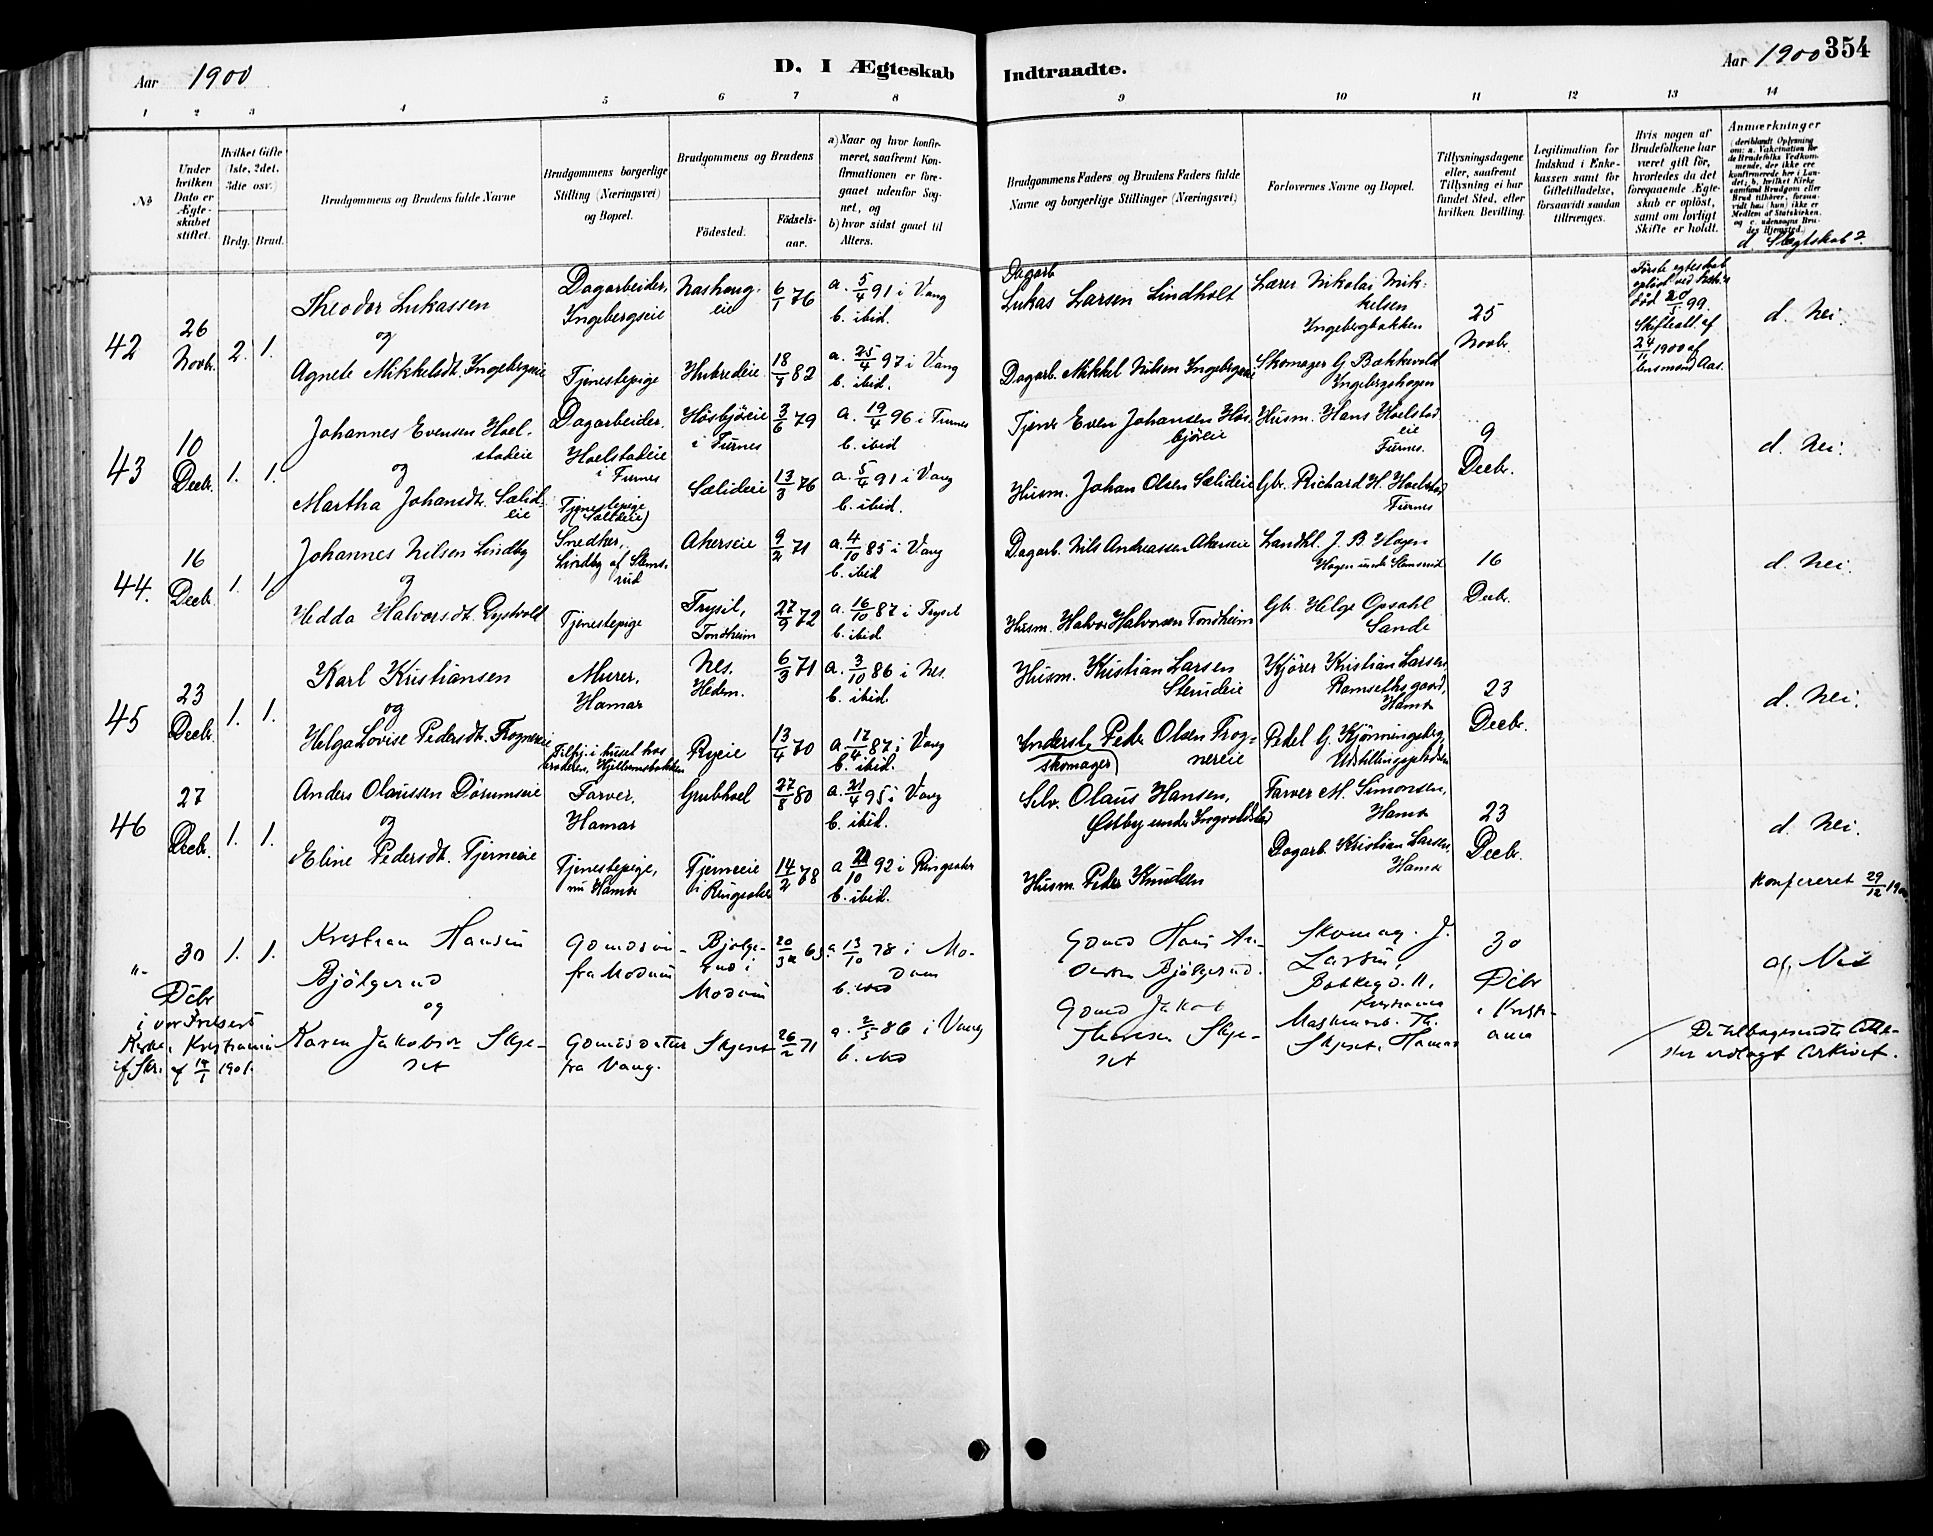 Aar 1900
D. I Ægteskab Indtraadte.
Aar 1900 354
1 2 3 4 5 6 7 8 9 10 11 12 13 14
No
Under hvilken Dato er Ægteskabet stiftet.
Hvilket Gifte (1ste, 2det, 3die osv.)
Brdg. Brud.
Brudgommens og Brudens fulde Navne
Brudgommens borgerlige Stilling (Næringsvei) og Bopæl.
Brudgommens og Brudens
Fødested.
Fødsels-aar.
a) Naar og hvor konfirmeret, saafremt Konfirmationen er foregaaet udenfor Sognet, og
b) hvor sidst gaaet til Alters.
Brudgommens Faders og Brudens Faders fulde Navne og borgerlige Stillinger (Næringsvei)
Forlovernes Navne og Bopæl.
Tillysningsdagene eller, saafremt Tillysning ei har fundet Sted, efter hvilken Bevilling.
Legitimation for Indskud i Enkekassen samt for Giftetilladelse, forsaavidt saadan tiltrænges.
Hvis nogen af Brudefolkene har været gift før, hvorledes da det foregaaende Ægteskab er opløst, samt om lovligt Skifte er holdt.
Anmærkninger
d. Slægtskab?
42
26 Novbr.
2. 1.
Theodor Lukassen
og
Agnete Mikkelsdt. Ingebergeie
Dagarbeider, Ingebergeie
Tjenestepige
Nashougeie
Hubredeie
6/1 76
18/1 82
a. 5/4 91 i Vang
b. ibid.
a. 25/4 97 i Vang
b. ibid.
Dagarb. Lukas Larsen Lindholt
Dagarb. Mikkel Nilsen Ingebergeie
Lærer Nikolai Mikkelsen Ingebergbakken
Skomager G Bakkevold Ingebergshagen
25 Novbr.
Første egteskab opløst ved død 20/5 99. Skifteatt. af 24/11 1900 af lensmand Aas.
d. Nei.
43
10 Decbr.
1. 1.
Johannes Evensen Hoelstadeie
og
Martha Johansdt. Sælideie
Dagarbeider, Hoelstadeie i Furnes
Tjenestepige
Høsbjøreie i Furnes
Sælideie
3/6 79
13/3 76
a. 19/4 96 i Furnes
b. ibid
a. 5/4 91 i Vang
b. ibid.
Tjener Even Johansen Høsbjøreie
Husm. Johan Olsen Sælideie
Husm. Hans Hoelstadeie Furnes.
Gbr. Richard H. Hoelstad Furnes
9 Decbr.
d. Nei.
44.
16 Decbr.
1. 1.
Johannes Nilsen Lindby
og
Hedda Halvorsdt. Rystvold
Snedker, Lindby af Stemsrud
Tjenestepige
Akerseie
Trysil, Tondheim
9/2 71
27/9 72
a. 4/10 85 i Vang
b. ibid
a. 16/10 87 i Trysil
b. ibid
Dagarb. Nils Andreassen Akerseie
Husm. Halvor Halvorsen Tondheim
Landhl. J. B. Hagen Hagen under Stemsrud
Gbr. Helge Opsahl Sande
16 Decbr.
d. Nei.
45
23 Decbr.
1. 1.
Karl Kristiansen
og
Helga Lovise Pedersdt. Frognereie
Murer, Hamar
Tilhj. i huset hos broderen, Hjellumsbakken
Nes, Hedem.
Ryeie
6/3 71
13/4 70
a. 3/10 86 i Nes.
b. ibid.
a. 17/4 87 i Vang
b. ibid.
Husm. Kristian Larsen Sterudeie
Inderst (skomager) Peder Olsen Frognereie
Kjører Kristian Larsen, Ramsethsgaard, Hamar
Pedel G. Kjønningsberg, Udstillingspladsen
23 Decbr.
d. Nei.
46
27 Decbr.
1. 1.
Anders Olaussen Dørumseie
og
Eline Pedersdt. Tjerneeie
Farver, Hamar
Tjenestepige, nu Hamar
Grubhoel
Tjerneeie i Ringsaker
27/8 80
14/2 78
a. 21/4 95 i Vang
b. ibid.
a 2/10 92 i Ringsaker
b. ibid.
Selv. Olaus Hansen, Østby under Ingvoldstad
Husm. Peder Knudsen
Farver M. Simonsen, Hamar
Dagarb. Kristian Larsen, Hamar
23 Decbr.
d. Nei.
Konfereret 29/12 1900
"-
30 Dcbr
1. 1.
i vor Frelsers Kirke, Kristiania if Skr. af 14/1 1901.
Kristian Hansen Bjølgerud
og
Karen Jakobsen Skjeset
Gaardsøn fra Modum
Gaardsdatter fra Vang.
Bjølgerud i Modum
Skjeset
20/3 65
26/2 71
a. 13/10 78 i Modum
b.
a. 2/5 86 i Vang
b.
Gbmd Hans Andersen Bjølgerud.
Gbmd Jakob Thoresen Skjeset
Skomag. J. Larsen, Bakkegd. 11, Kristiania
Maskinarb. Th. Skjeset, Hamar
30 Dcbr i Kristiania
d. Nei
De tilbagesendte Attester vedlagt Arkivet.